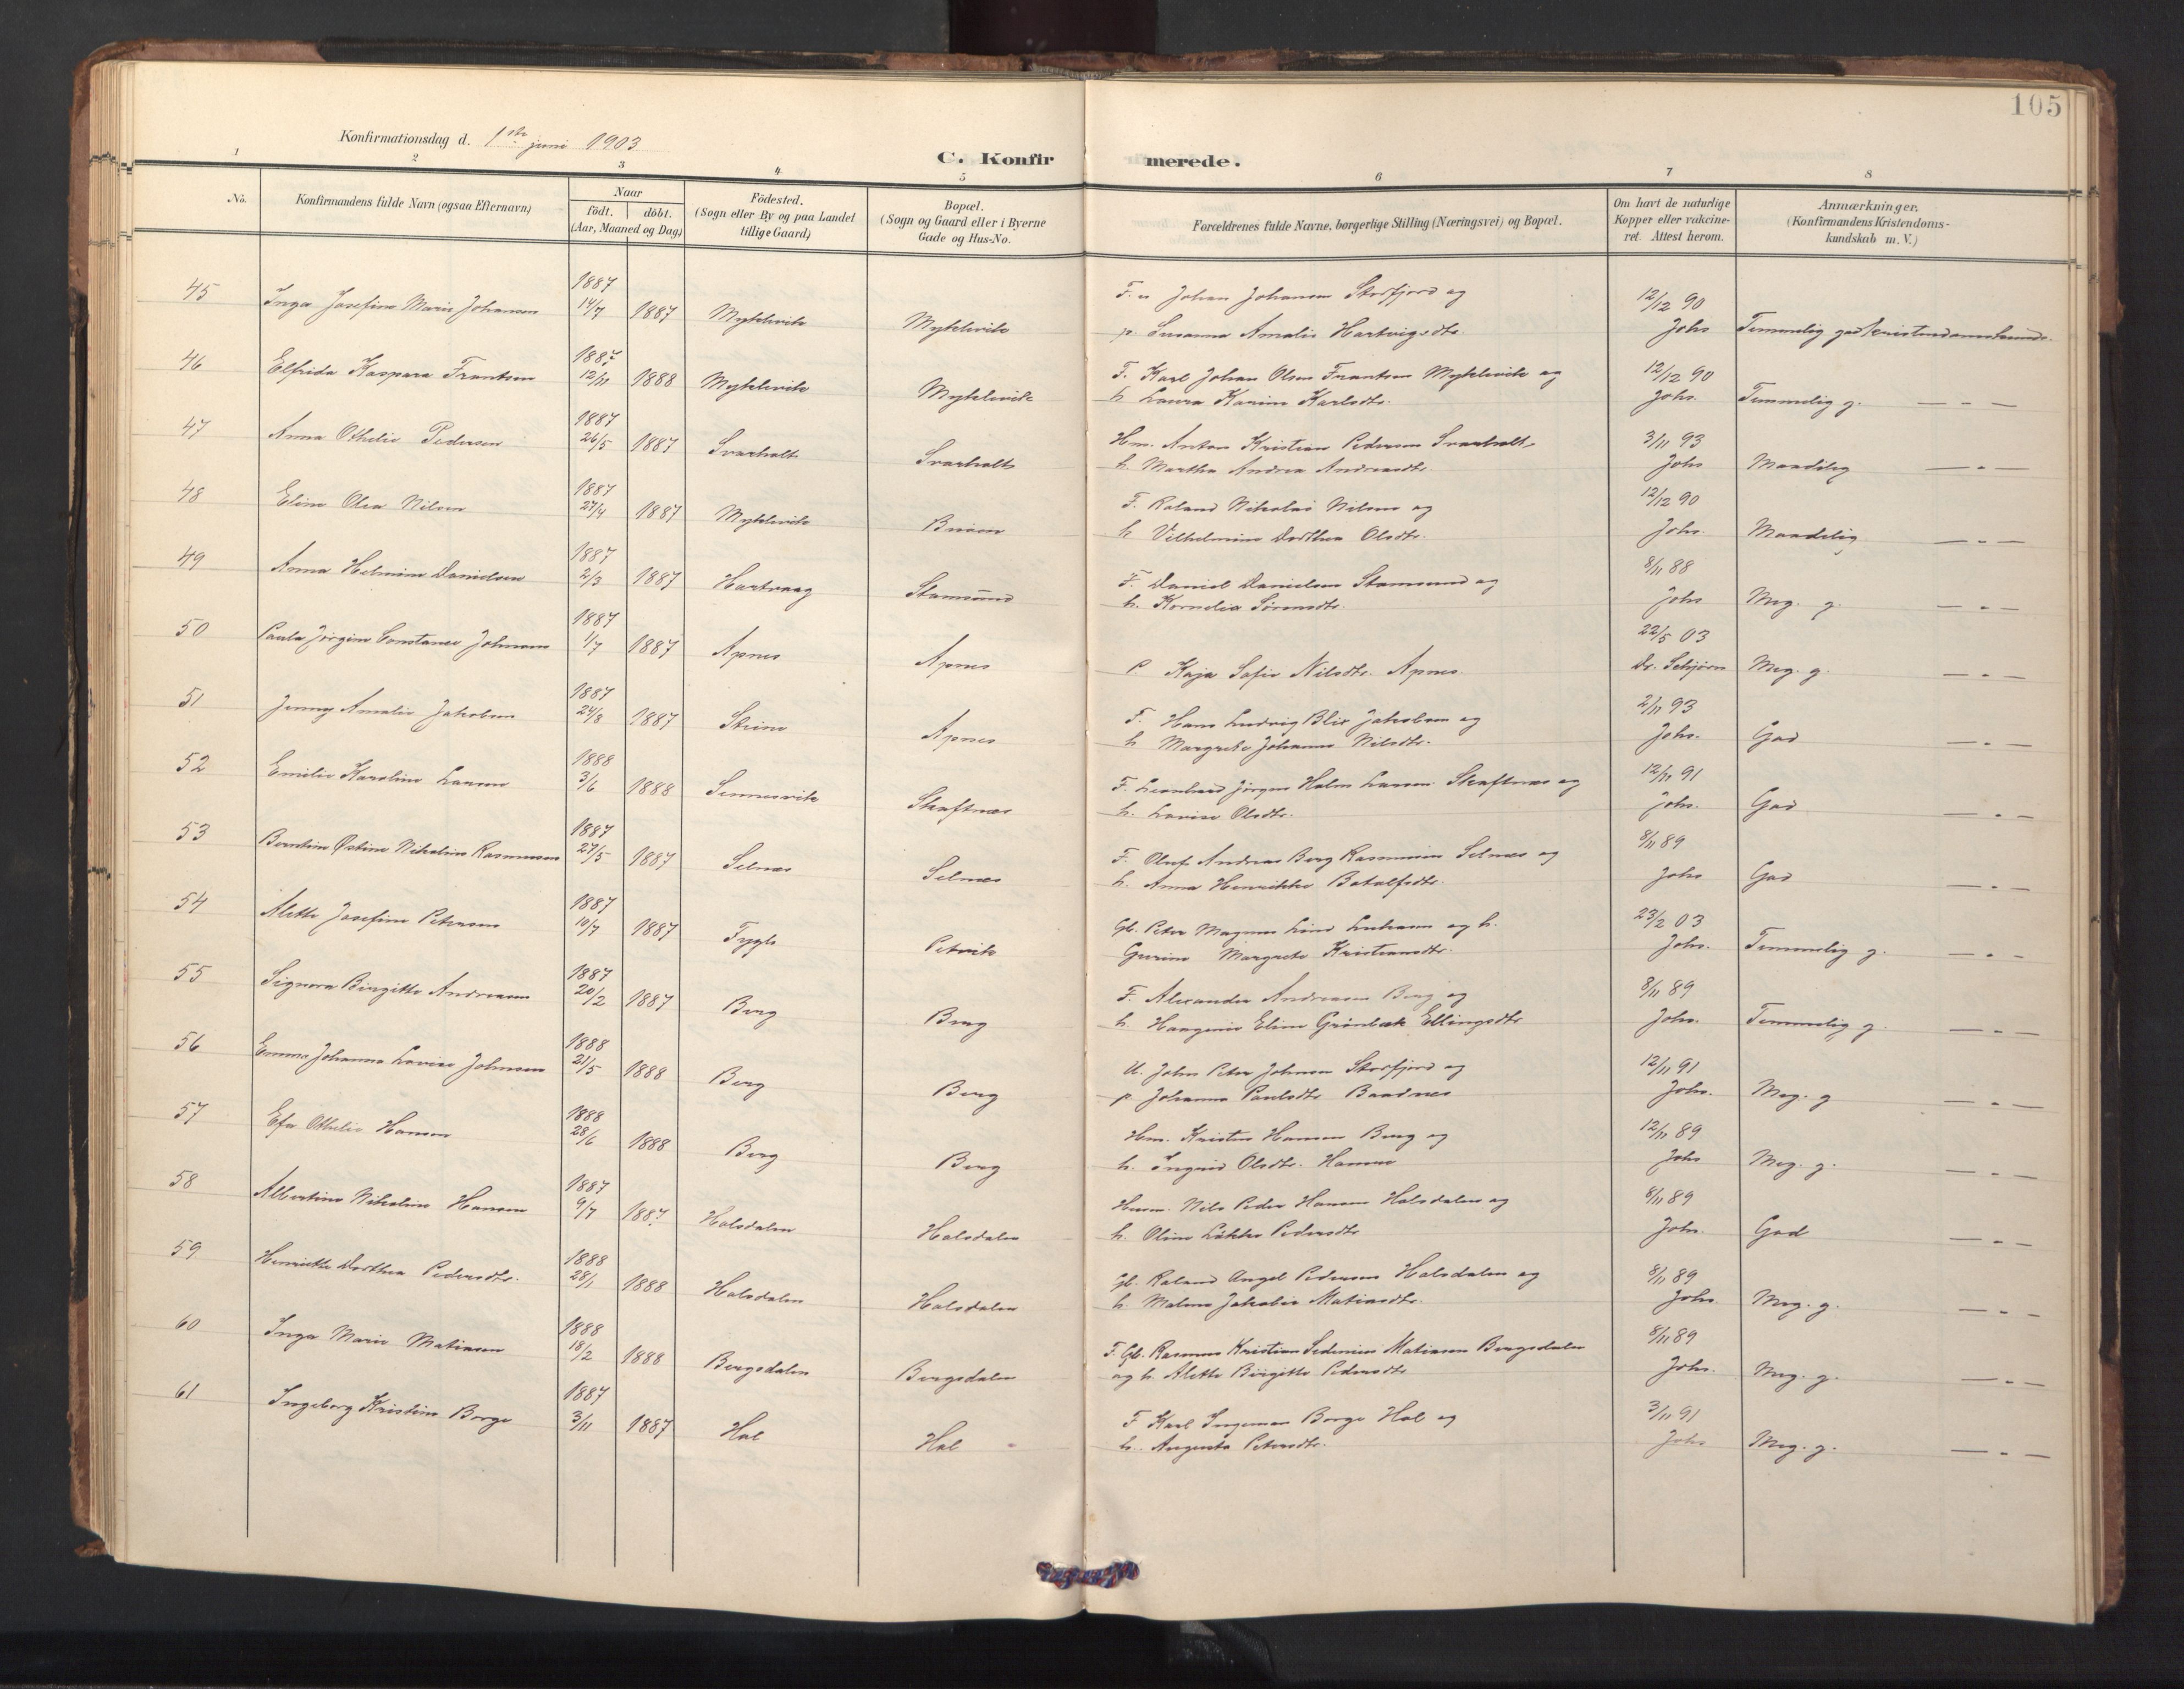 105
Konfirmationsdag d. 1ste juni 1903
C. Konfirmerede.
1 2 3 4 5 6 7 8
No.
Konfirmandens fulde Navn (ogsaa Efternavn)
Naar
födt. | döbt.
(Aar, Maaned og Dag)
Födested.
(Sogn eller By og paa Landet
tillige Gaard)
Bopæl.
(Sogn og Gaard eller i Byerne
Gade og Hus-No.
Forældrenes fulde Navne, borgerlige Stilling (Næringsvei) og Bopæl.
Om havt de naturlige
Kopper eller vakcine-
ret. Attest herom.
Anmærkninger.
(Konfirmandens Kristendoms-
kundskab m. V.)
1887 F. u Johan Johansen Storfjord og 12/12 90
45 Inga Josefine Marie Johansen 14/7 1887 Myklevik Myklevik p. Susanna Amalie Hartvigsdtr. Johs Temmelig god kristendomskunds.
1887 F. Karl Johan Olsen Frantsen Myklevik og 12/12 90
46 Elfrida Kaspara Frantsen 12/11 1888 Myklevik Myklevik h. Laura Karine Karlsdtr. Johs. Temmelig g. — „ —
1887 Hm. Anton Kristian Pedersen Svarholt 3/11 93
47 Anna Othelie Pedersen 26/5 1887 Svarholt Svarholt h. Martha Andrea Andreasdtr. Johs Maadelig — „ —
1887 F. Roland Nikolai Nilsen og 12/12 90
48 Eline Olea Nilsen 27/4 1887 Myklevik h. Vilhelmine Dorthea Olsdtr. Johs. Maadelig — „ —
1887 F. Daniel Danielsen Stamsund og 8/11 88
49 Anna Helmine Danielsen 2/3 1887 Hartvaag Stamsund h. Kornelia Sørensdtr. Johs Meg. g. — „ —
1887 22/5 03
50 Paula Jørgine Constance Johnsen 1/7 1887 Apnes Apnes p Kaja Sofie Nilsdtr. Apnes Dr. Schjørn Meg. g. — „ —
1887 F. Hans Ludvig Blix Jakobsen og 2/11 93
51 Jenny Amalie Jakobsen 24/8 1887 Steine Apnes h Margrete Johanna Nilsdtr. Johs. God — „ —
1888 F. Leonhard Jørgen Holm Larsen Skaftnes og 12/11 91
52 Emilie Karoline Larsen 3/6 1888 Sennesvik Skaftnes h. Lovise Olsdtr. Johs. God — „ —
1887 F. Oluf Andreas Berg Rasmussen Selnæs og 8/11 89
53 Berntine Østine Nikoline Rasmussen 27/5 1887 Selnæs Selnæs h. Anna Henrikke Botolfsdtr. Johs God — „ —
1887 Gb. Peter Magnus Lind og h. 23/2 03
54 Alette Josefine Petersen 10/7 1887 Fygle Petvik Gurine Margrete Kristiansdtr. Johs. Temmelig g. — „ —
1887 F. Alexander Andreasen Berg og 8/11 89
55 Signora Birgitte Andreasen 20/2 1887 Berg Berg h. Haagenie Eline Grönbæk Ellingsdtr Johs. Temmelig g. — „ —
1888 U. John Peter Johnsen Storfjord og 12/11 91
56 Emma Johanna Lovise Johnsen 21/5 1888 Berg Berg p Johanna Paulsdtr Baadnes Johs. Meg. g — „ —
1888 Hm. Kristen Hansen Berg og 12/11 89
57 Efa Othelie Hansen 28/6 1888 Berg Berg h. Ingrid Olsdtr. Hansen Johs Meg. g. — „ —
1887 Husm. Nils Peder Hansen Holsdalen og 8/11 89
58 Albertine Nikoline Hansen 9/7 1887. Holsdalen Holsdalen h. Oline Lökke Pedersdtr Johs. God — „ —
1888 Gb. Roland Angel Pedersen Holsdalen og 8/11 89
59 Henriette Dorthea Pedersdtr. 28/1 1888 Holsdalen Holsdalen h. Malene Jakobie Matiasdtr. Johs. Meg. g. — „ —
1888 F. Gb. Rasmus Kristian Sedenius Matiasen Bergsdalen 8/11 89
60 Inga Marie Matiasen 18/2 1888 Bergsdalen Bergsdalen og h. Alette Birgitte Pedersdtr Johs. Meg. g. — „ —
1887 F Karl Ingeman Borge Hol og 3/11 91
61 Ingeborg Kristine Borge 3/11 1887 Hol Hol h. Augusta Petersdtr. Johs Meg. g. — „ —